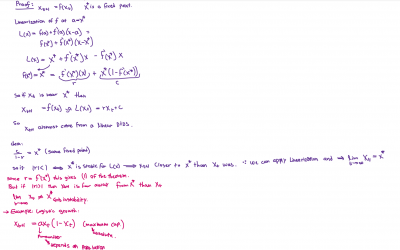 Proof: x_{t+1} = f(x_t) x* is a fixed point.
Linearization of f at a=x*
L(x) = f(a) + f'(a)(x-a) =
f(x*) + f'(x*)(x-x*)
L(x) = x* + f'(x*)x - f'(x*)x
f(x*) = x* = f'(x*)(x) + x*(1-f'(x*))
r c
So if x_t is near x* then
x_{t+1} = f(x_t) ≈ L(x_t) = r x_t + c
So
x_{t+1} almost came from a linear DTDS.
c/(1-r) = x* (same fixed point)
so if |r|<1 ⟺ x* is stable for L(x) → x_{t+1} closer to x* than x_t was. ∴ we can apply linearization and → lim x_t = x*
since r = f'(x*) this gives (1) of the theorem.
But if |r|>1 then x_{t+1} is far away from x* than x_t
lim x_t ≠ x*
→ Example: Logistic growth:
x_{t+1} = a x_t (1-x_t) (maximum cap)
parameter absolute.
depends on population